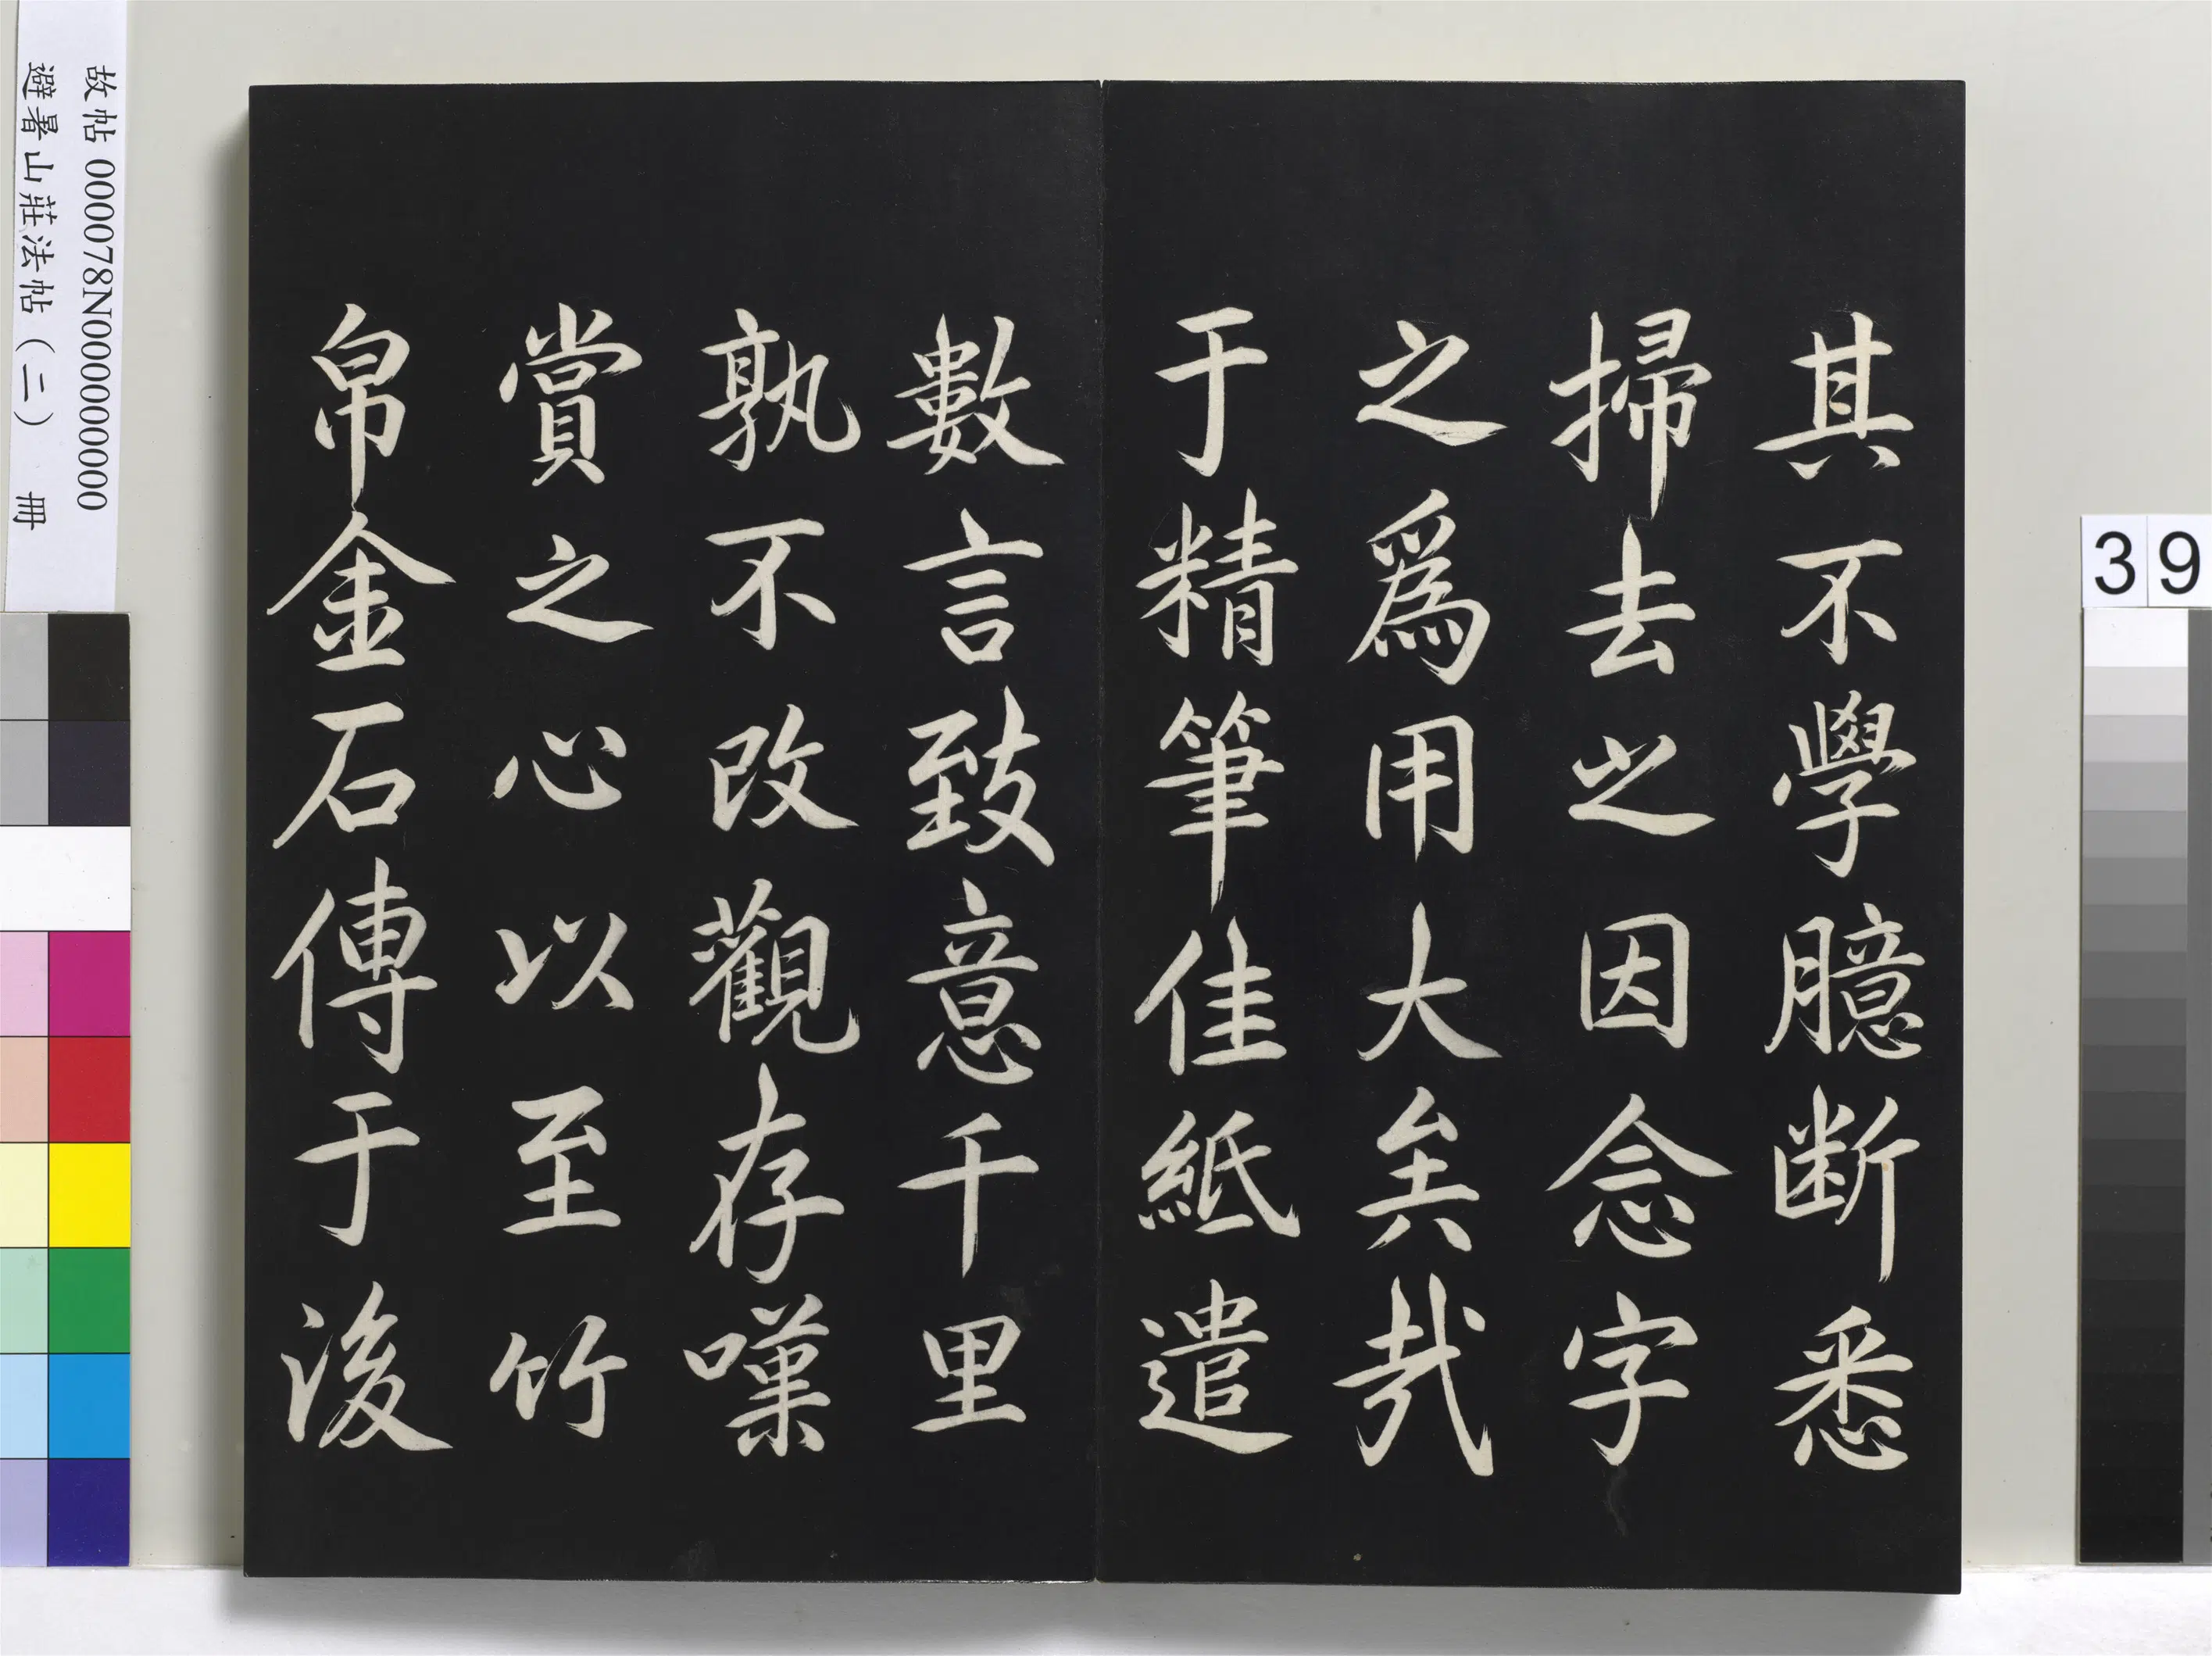 其不學臆断悉
掃去之因念字
之爲用大矣哉
于精筆佳紙遣
數言致意千里
孰不改觀存嘆
賞之心以至竹
帛金石傳于後
故帖 000078N000000000
避暑山莊法帖(二) 冊
39